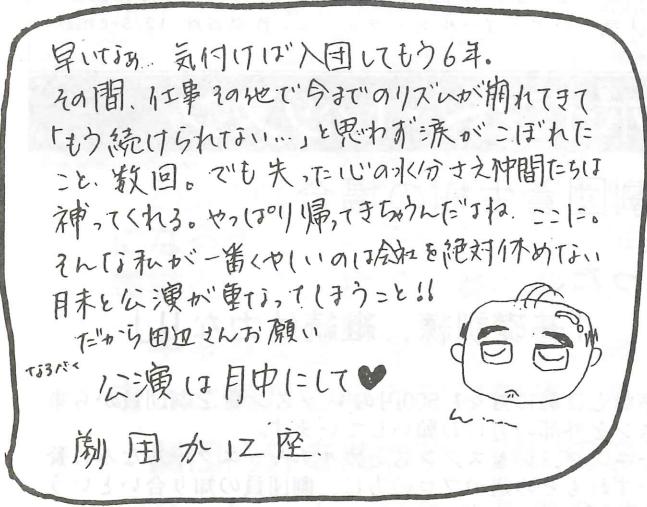 早いなぁ… 気付けば入団してもう6年。
その間、仕事その他で今までのリズムが崩れてきて
「もう続けられない…」と思わず涙がこぼれた
こと、数回。でも失った心の水分さえ仲間たちは
補ってくれる。やっぱり帰ってきちゃうんだよね、ここに。
そんな私が一番くやしいのは会社を絶対休めない
月末と公演が重なってしまうこと!!
だから田辺さんお願い
なるべく
公演は月中にして♥
ん……
劇団カニ座.